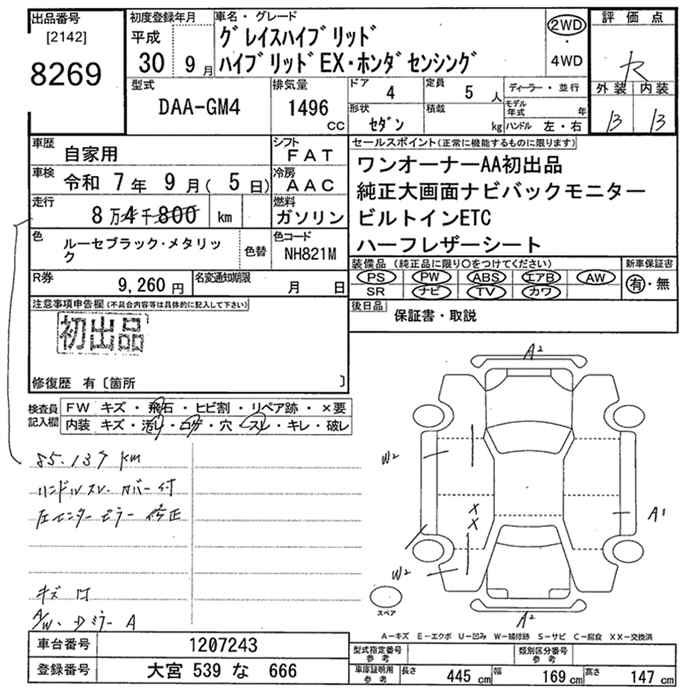 出品番号
[2142]
8269
初度登録年月
平成
30 9月
車名・グレード
グレイスハイブリッド
ハイブリッドEX・ホンダセンシング
2WD
・
4WD
評価点
外装 内装
B B
型式
DAA-GM4
排気量
1496
CC
ドア
4
定員
5 人
ディーラー・並行
形状
セダン
積載
kg
モデル年式 年
ハンドル 左・右
車歴
自家用
シフト
FAT
車検 令和 7年 9月( 5日)
冷房
AAC
走行
8万4千800 km
燃料
ガソリン
色
ルーセブラック・メタリック
色替
色コード
NH821M
R券
9,260円
名変通知期限
月 日
セールスポイント(正常に機能するものに限ります)
ワンオーナーAA初出品
純正大画面ナビバックモニター
ビルトインETC
ハーフレザーシート
装備品(純正品に限り○をつけてください)
PS PW ABS エアB AW
SR ナビ TV カワ
新車保証書
有・無
後日品
保証書・取説
注意事項申告欄(不具合内容等は具体的に記入して下さい)
初出品
修復歴 有〔箇所 〕
検査員記入欄
FW キズ・飛石・ヒビ割・リペア跡・×要
内装 キズ・汚レ・コゲ・穴・スレ・キレ・破レ
85.139 km
ハンドルスレ・カバー付
左センターピラー修正
キズ
A/W・ A
A2
W2
A1
W2
A2
XX
スペア
A-キズ E-エクボ U-凹み W-補修跡 S-サビ C-腐食 XX-交換済
車台番号 1207243
登録番号 大宮 539 な 666
型式指定番号
参考
類別区分番号
参考
車庫証明用
参考
長さ 445cm
幅 169cm
高さ 147cm